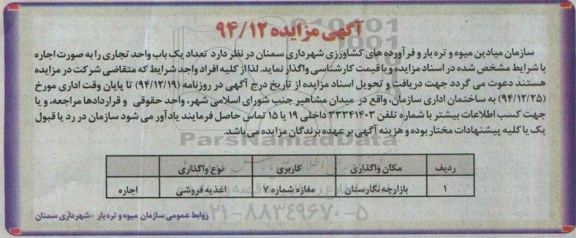 آگهی مزایده ۹۴/۱۲
سازمان میادین میوه و تره بار و فرآورده های کشاورزی شهرداری سمنان در نظر دارد تعداد یک باب واحد تجاری را به صورت اجاره
با شرایط مشخص شده در اسناد مزایده و با قیمت کارشناسی واگذار نماید. لذا از کلیه افراد واجد شرایط که متقاضی شرکت در مزایده
هستند دعوت می گردد جهت دریافت و تحویل اسناد مزایده از تاریخ درج آگهی در روزنامه (۹۴/۱۲/۱۹) تا پایان وقت اداری مورخ
(۹۴/۱۲/۲۵) به ساختمان اداری سازمان، واقع در میدان مشاهیر جنب شورای اسلامی شهر، واحد حقوقی و قراردادها مراجعه، و یا
جهت کسب اطلاعات بیشتر با شماره تلفن ۳۳۳۴۱۴۰۳ داخلی ۱۹ یا ۱۵ تماس حاصل فرمایند یادآور می شود سازمان در رد یا قبول
یک یا کلیه پیشنهادات مختار بوده و هزینه آگهی بر عهده برندگان مزایده می باشد.
ردیف مکان واگذاری کاربری نوع واگذاری
۱ بازارچه نگارستان مغازه شماره ۷ اغذیه فروشی اجاره
روابط عمومی سازمان میوه و تره بار - شهرداری سمنان
ParsNamadData
۰۲۱-۸۸۳۴۹۶۷۰-۵